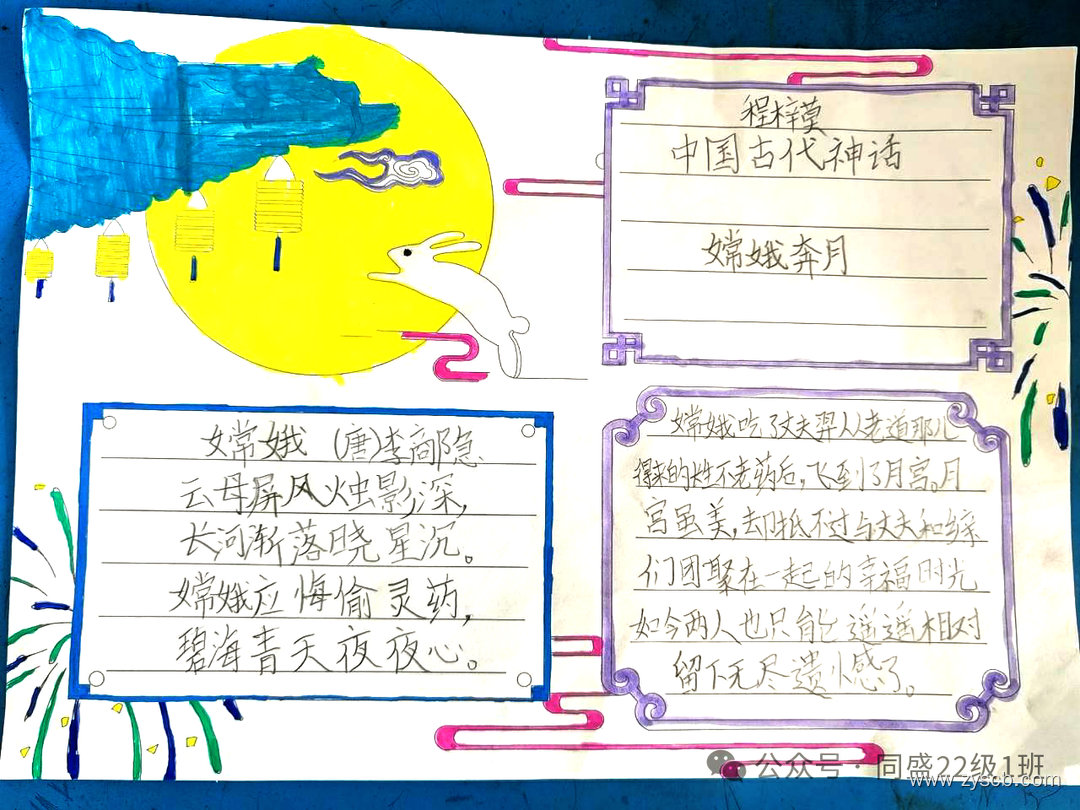 程梓萸
中国古代神话
嫦娥奔月
嫦娥 (唐)李商隐
云母屏风烛影深,
长河渐落晓星沉。
嫦娥应悔偷灵药,
碧海青天夜夜心。
嫦娥吃了丈夫羿从老道那儿
得来的长性不老药后,飞到了月宫。月
宫虽美,却抵不过与丈夫和亲
们团聚在一起的幸福时光
如今两人也只能遥遥相对
留下无尽遗憾了。
公众号·同盛22级1班
www.zyscb.com